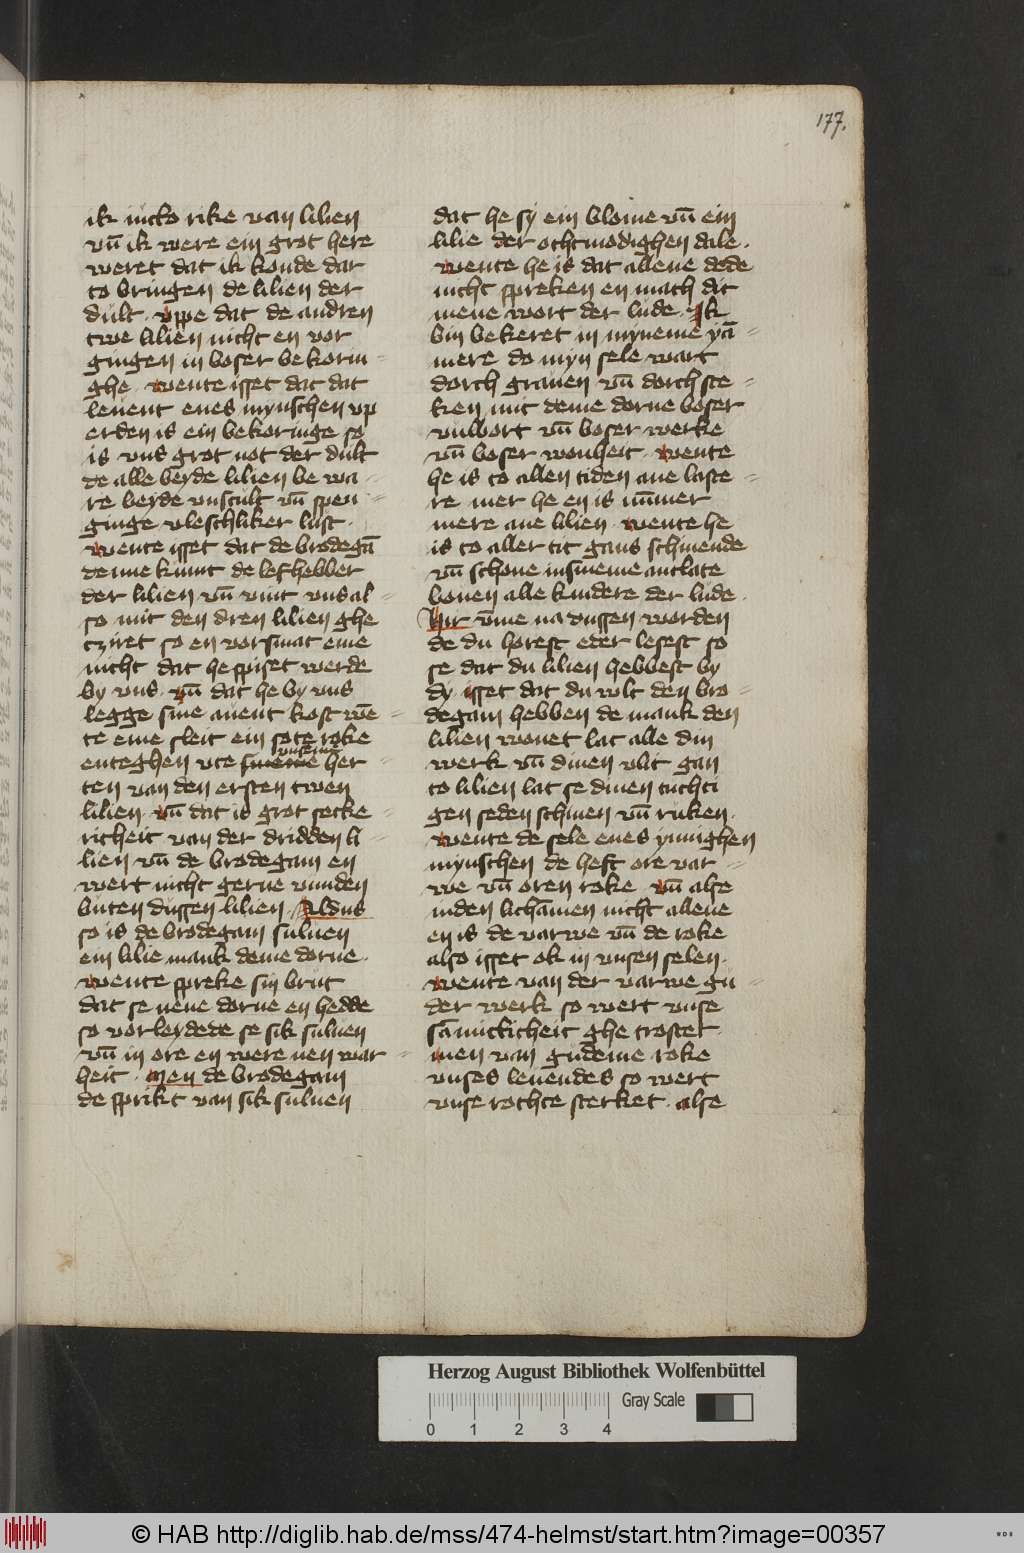 177.
ik nicto rike van lilien
vn̄ ik were ein grot here
weret dat ik konde dar
to bringen de lilien der
dult · vppe dat de andren
twe lilien nicht en vor
gingen in boser bekorin-
ghe · wente isset dat dat
levent enes mynschen vp
erden is ein bekoringe so
is vns grot not der dult
de alle beyde lilien be wa-
re beyde vnscult vn̄ spen-
ginge vleschliker lust ·
wente isset dat de brodegā
de nne kūmt de lefhebber
der lilien vn̄ vint vns al-
so mit den dren lilien ghe
cziret so en vorsmat eme
nicht dat he spiset werde
by vns · vn̄ dat he by vns
legge sine avent kost wē-
te eme sleit ein sote roke
enteghen vte vnseme her-
ten van den ersten twen
lilien · vn̄ dat is grot secke-
richeit van der dridden li-
lien vn̄ de brodegam en
wert nicht gerne vunden
buten dussen lilien · Aldus
so is de brodegam sulven
ein lilie mank deme dorne ·
wente spreke sin brut
dat se nene dorne en hedde
so vorleydede se sik sulven
vn̄ in ore en were nen war-
heit · Men de brodegam
de sprikt van sik sulven
dat he sy ein blome vn̄ ein
lilie der othmodighen dale ·
wente he is dat allene dede
nicht spreken en mach dit
mene wort der lude · Ik
bin bekeret in myneme yā-
mere do myn sele wart
dorch graven vn̄ dorch ste-
ken mit deme dorne boser
vulbort vn̄ boser werke
vn̄ boser wonheit · wente
he is to allen tiden ane laste-
re mer he en is nūmer
mere ane lilien · wente he
is to aller tit gans schinende
vn̄ schone in sineme antlate
boven alle kindere der lude ·
Hir v̄me na dussen worden
de du horest eder lesest so
se dat du lilien hebbest by
dy · isset dat du wlt den bro-
degam hebben de mank den
lilien wonet lat alle din
werk vn̄ dinen vlit gan
to lilien lat se dinen tuchti
gen seden schinen vn̄ ruken ·
wente de sele enes ynnighen
mynschen de heft ore var-
we vn̄ oren roke · vn̄ alse
in den lichāmen nicht allene
en is de varwe vn̄ de roke
also isset ok in vnsen selen ·
wente van der varwe gu-
der werk so wert vnse
sāmiticheit ghe troster ·
men van gudeme roke
vnses levendes so wert
vnse rochte sterket · alse
Herzog August Bibliothek Wolfenbüttel
Gray Scale
0 1 2 3 4
© HAB http://diglib.hab.de/mss/474-helmst/start.htm?image=00357